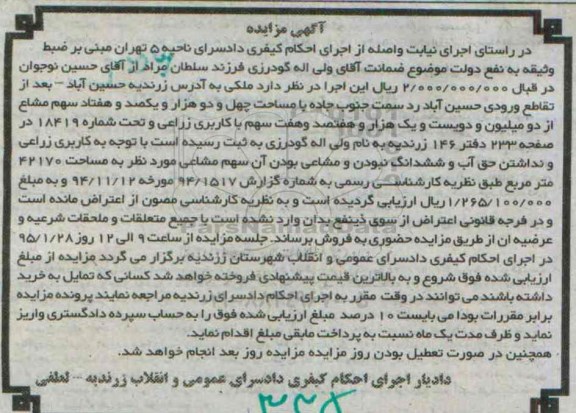 آگهی مزایده
در راستای اجرای نیابت واصله از اجرای احکام کیفری دادسرای ناحیه ۵ تهران مبنی بر ضبط
وثیقه به نفع دولت موضوع ضمانت آقای ولی اله گودرزی فرزند سلطان مراد از آقای حسین نوجوان
در قبال ۲/۰۰۰/۰۰۰/۰۰۰ ریال این اجرا در نظر دارد ملکی به آدرس زرندیه حسین آباد – بعد از
تقاطع ورودی حسین آباد رد سمت جنوب جاده با مساحت چهل و دو هزار و یکصد و هفتاد سهم مشاع
از دو میلیون و دویست و یک هزار و هفتصد وهفت سهم با کاربری زراعی و تحت شماره ۱۸۴۱۹ در
صفحه ۲۳۳ دفتر ۱۴۶ زرندیه به نام ولی اله گودرزی به ثبت رسیده است با توجه به کاربری زراعی
و نداشتن حق آب و ششدانگ نبودن و مشاعی بودن آن سهم مشاعی مورد نظر به مساحت ۴۲۱۷۰
متر مربع طبق نظریه کارشناسی رسمی به شماره گزارش ۹۴/۱۵۱۷ مورخه ۹۴/۱۱/۱۲ و به مبلغ
۱/۲۶۵/۱۰۰/۰۰۰ ریال ارزیابی گردیده است و به نظریه کارشناسی مصون از اعتراض مانده است
و در فرجه قانونی اعتراض از سوی ذینفع بدان وارد نشده است با جمیع متعلقات و ملحقات شرعیه و
عرضیه ان از طریق مزایده حضوری به فروش برساند. جلسه مزایده از ساعت ۹ الی ۱۲ روز ۹۵/۱/۲۸
در اجرای احکام کیفری دادسرای عمومی و انقلاب شهرستان زرندیه برگزار می گردد مزایده از مبلغ
ارزیابی شده فوق شروع و به بالاترین قیمت پیشنهادی فروخته خواهد شد کسانی که تمایل به خرید
داشته باشند می توانند در وقت مقرر به اجرای احکام دادسرای زرندیه مراجعه نمایند پرونده مزایده
برابر مقررات بودا می بایست ۱۰ درصد مبلغ ارزیابی شده فوق را به حساب سپرده دادگستری واریز
نماید و ظرف مدت یک ماه نسبت به پرداخت مابقی مبلغ اقدام نماید.
همچنین در صورت تعطیل بودن روز مزایده مزایده روز بعد انجام خواهد شد.
دادیار اجرای احکام کیفری دادسرای عمومی و انقلاب زرندیه – لطفی